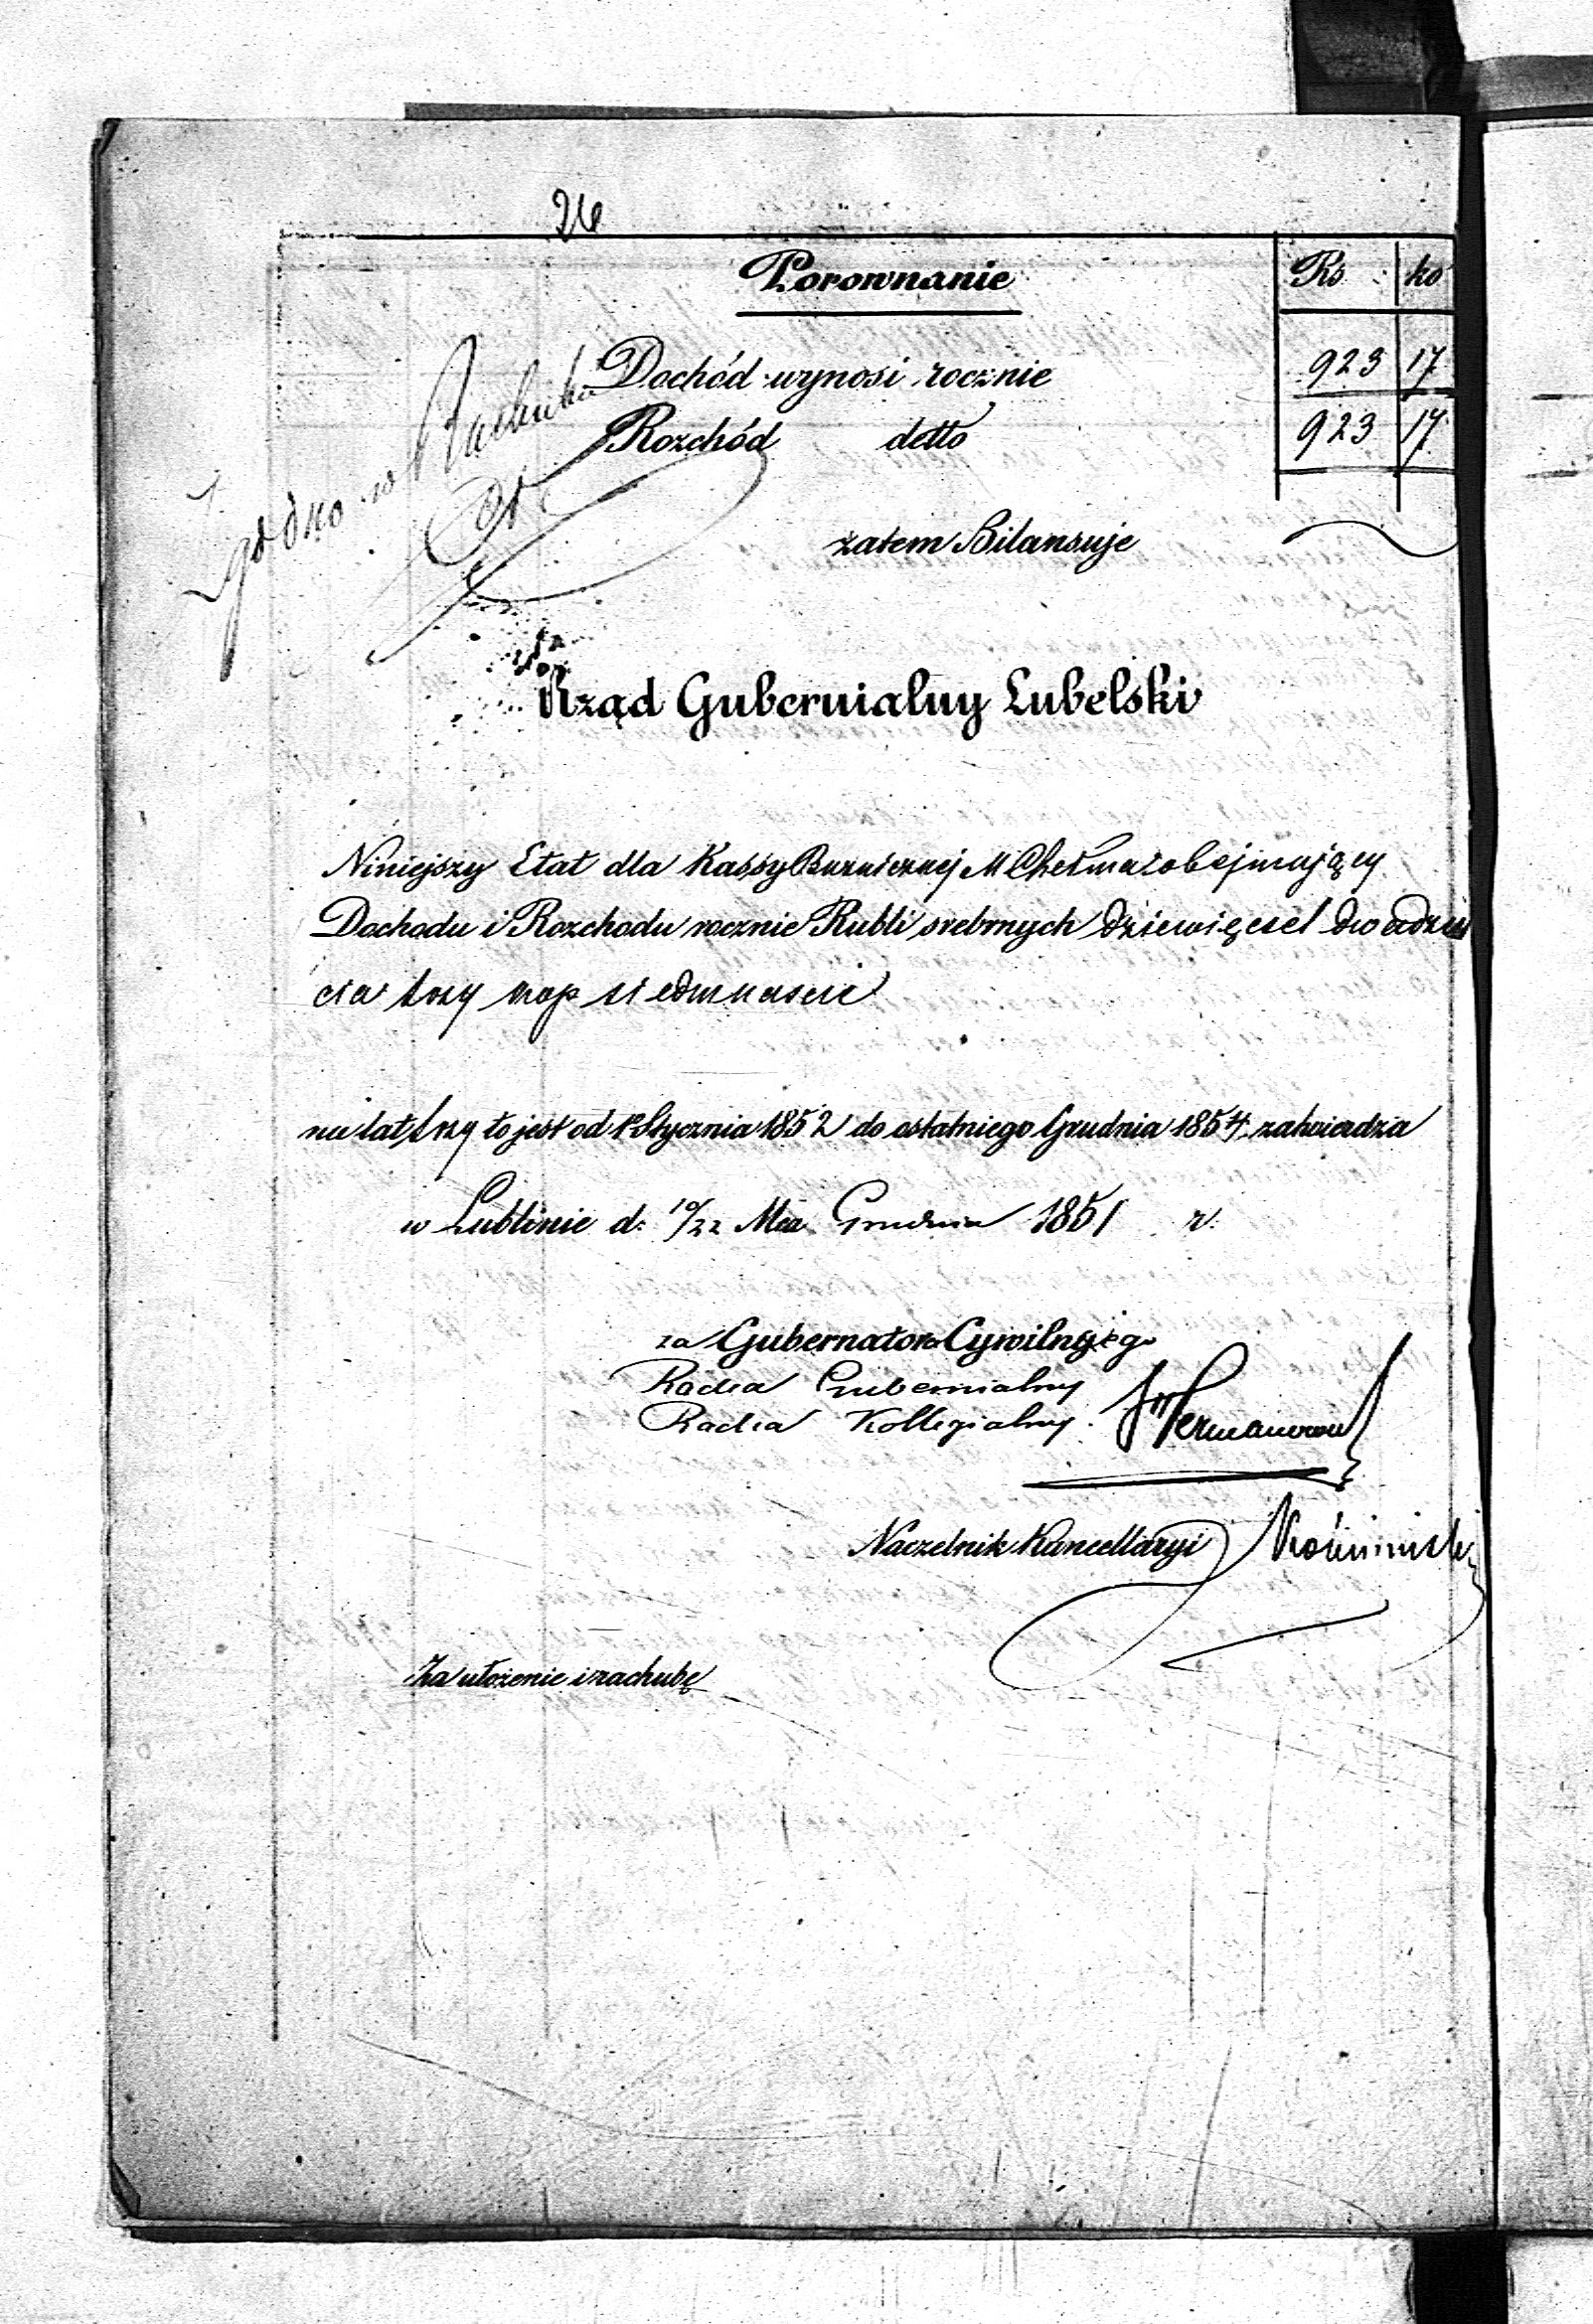 26
Porownanie
Rs ko
Dochód wynosi rocznie 923 17
Rozchód detto 923 17
Zgodno w Rachubie
zatem Bilansuje
Rząd Gubernialny Lubelski
Niniejszy Etat dla Kassy Bużnicznej M Chełma obejmujący
Dochodu i Rozchodu rocznie Rubli srebrnych dziewięcset dwadzie
cia trzy kop siedmnascie
na lat trzy to jest od 1 Stycznia 1852 do ostatniego Grudnia 1854 zatwierdza
w Lublinie d: 10/22 Mca Grudnia 1851 r.
za Gubernatora Cywilnego
Radca Gubernialny
Radca Kollegialny
Naczelnik Kancellaryi
Za ułożenie i rachubę